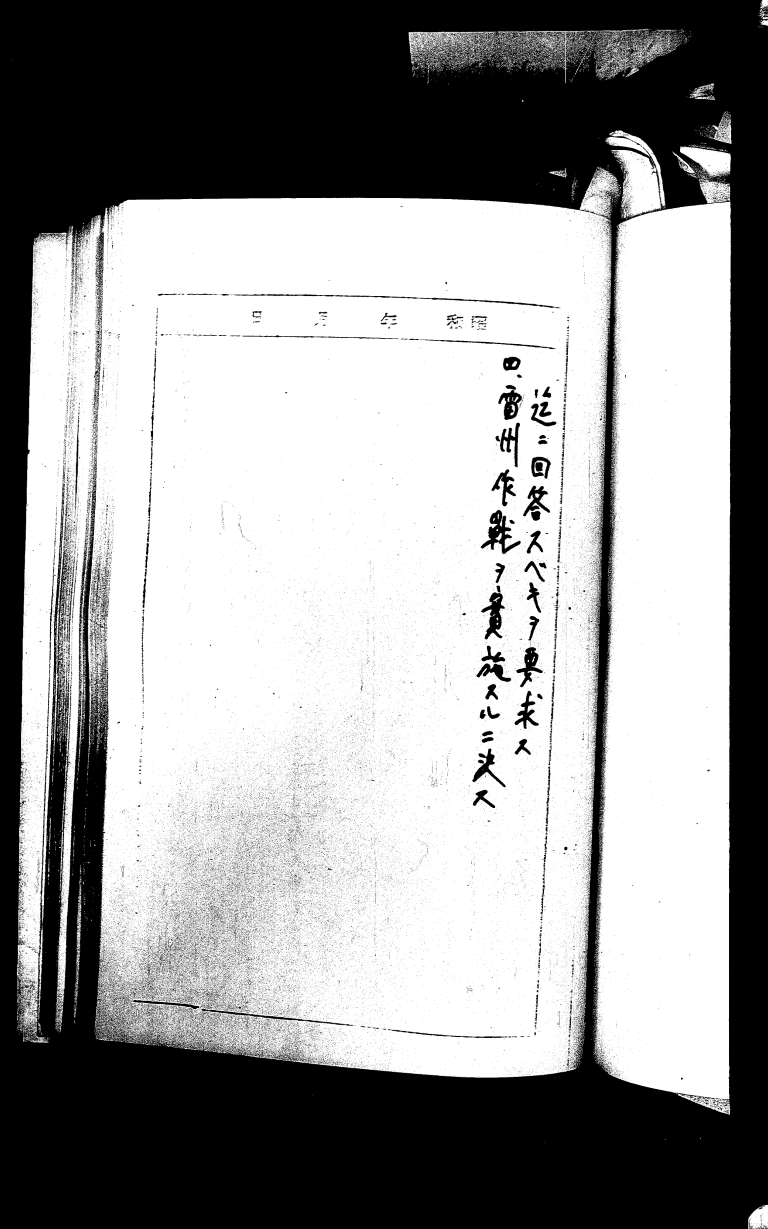 昭和 年 月 日
迄ニ回答スベキヲ要求ス
四、雷州作戰ヲ實施スルニ決ス